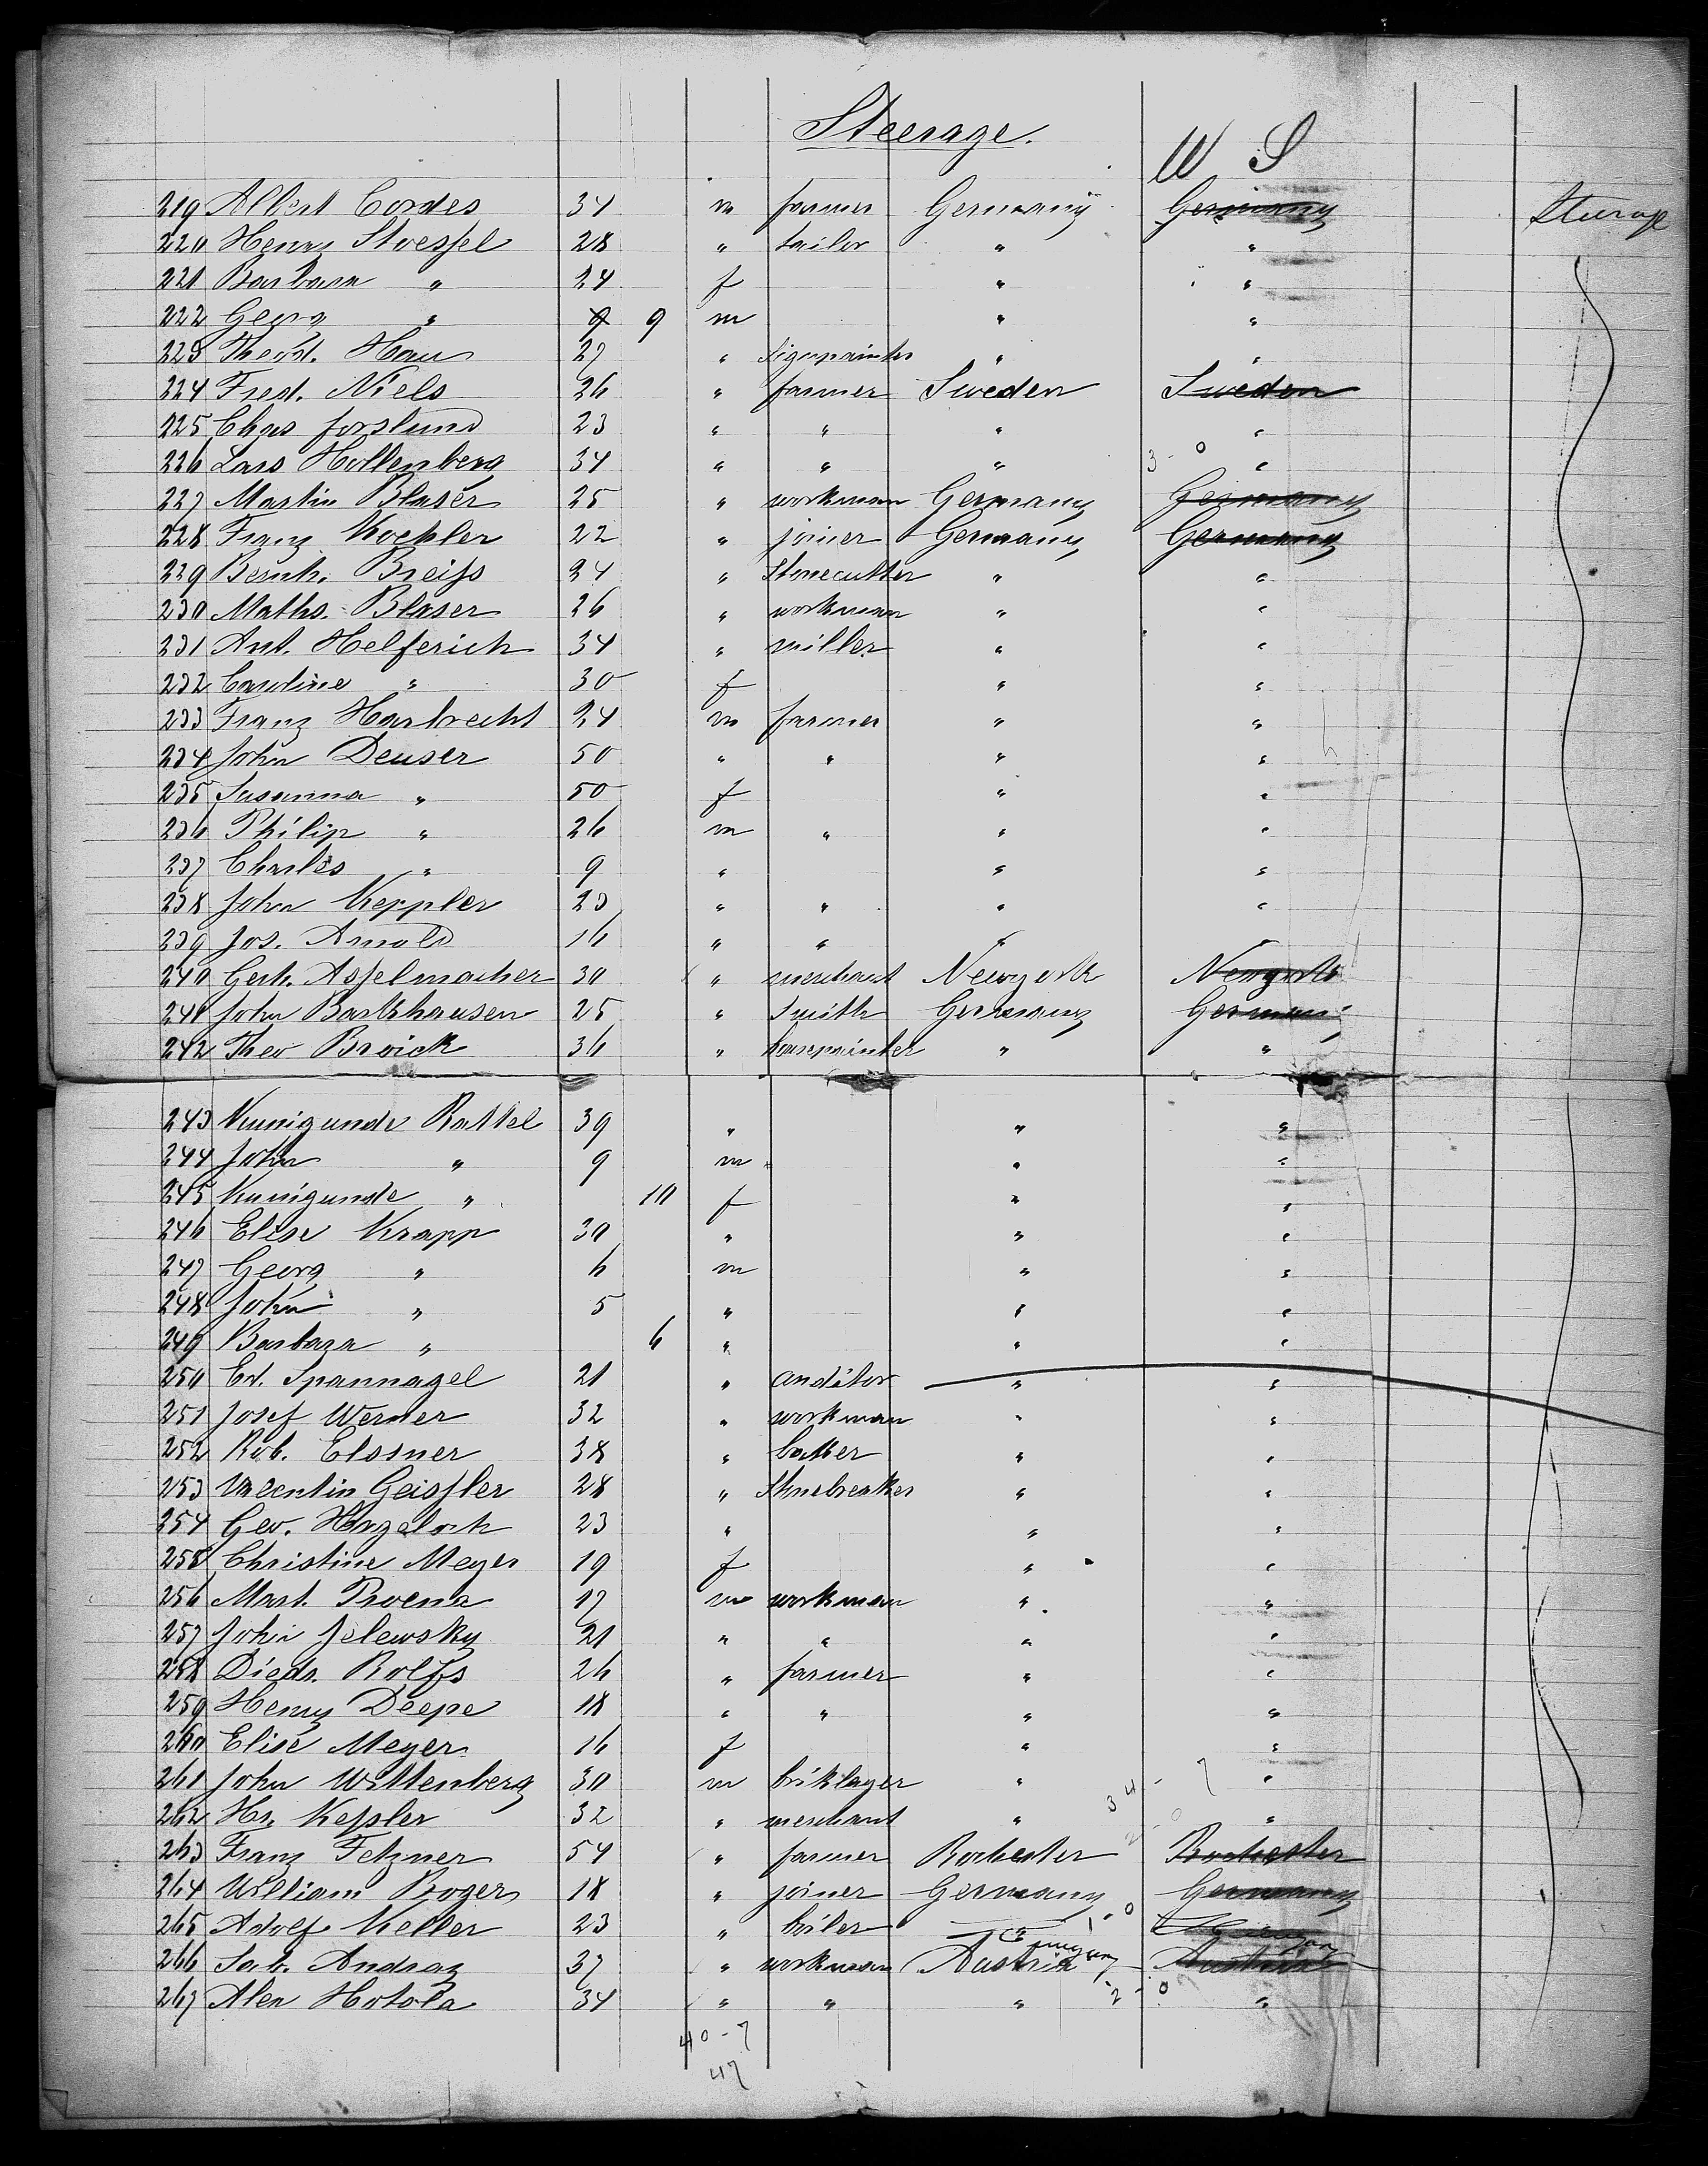 Steerage.
W S
219 Albert Cordes 34 m farmer Germany Germany Steerage
220 Henry Stoessel 28 " tailor " "
221 Barbara " 24 f " "
222 Georg " 9 9 m " "
223 Theod. Hau 27 " " "
224 Fred. Niels 26 " farmer Sweden Sweden
225 Chas Forslund 23 " " " "
226 Lars Hollenberg 34 " " " 3 - 0 "
227 Martin Blaser 25 " workman Germany Germany
228 Franz Koehler 22 " joiner Germany Germany
229 Bernh. Breiss 24 " Stonecutter " "
230 Maths. Blaser 26 " workman " "
231 Ant. Helferich 34 " miller " "
232 Caroline " 30 f " "
233 Franz Harbrecht 24 m farmer " "
234 John Deuser 50 " " " "
235 Susanna " 50 f " "
236 Philip " 26 m " " "
237 Charles " 9 " " "
238 John Keppler 23 " " " "
239 Jos. Arnold 16 " " " "
240 Gerh. Asselmacher 30 " merchant Newyork Newyork
241 John Barkhausen 25 " Smith Germany Germany
242 Theo Broick 36 " housepainter " "
243 Kunigunde Rattel 39 " " "
244 John " 9 m " "
245 Kunigunde " 10 f " "
246 Elise Krapp 30 " " "
247 Georg " 6 m " "
248 John " 5 " " "
249 Barbara " 6 " " "
250 Ed. Spannagel 21 " anditor " "
251 Josef Werner 32 " workman " "
252 Rob. Elssner 38 " " "
253 Geissler 28 " Stonebreaker " "
254 Geo. 23 " " "
255 Christine Meyer 19 f " "
256 Mart. Proena 17 m workman " "
257 John Jelewsky 21 " " " "
258 Diedr. Rolffs 26 " farmer " "
259 Henry Deepe 18 " " " "
260 Elise Meyer 16 f " "
261 John Wittenberg 30 m briklayer " 34 - 7 "
262 Hr. Kessler 32 " merchant " 2 - 0 "
263 Franz Fetzner 54 " farmer Rochester Rochester
264 William Boger 18 " joiner Germany Germany
265 Adolf Keller 23 " " 1 - 0
266 Jak. Andraz 37 " workman Austria Austria
267 Alex Hotola 34 " " " 2 - 0 "
40 - 7
47